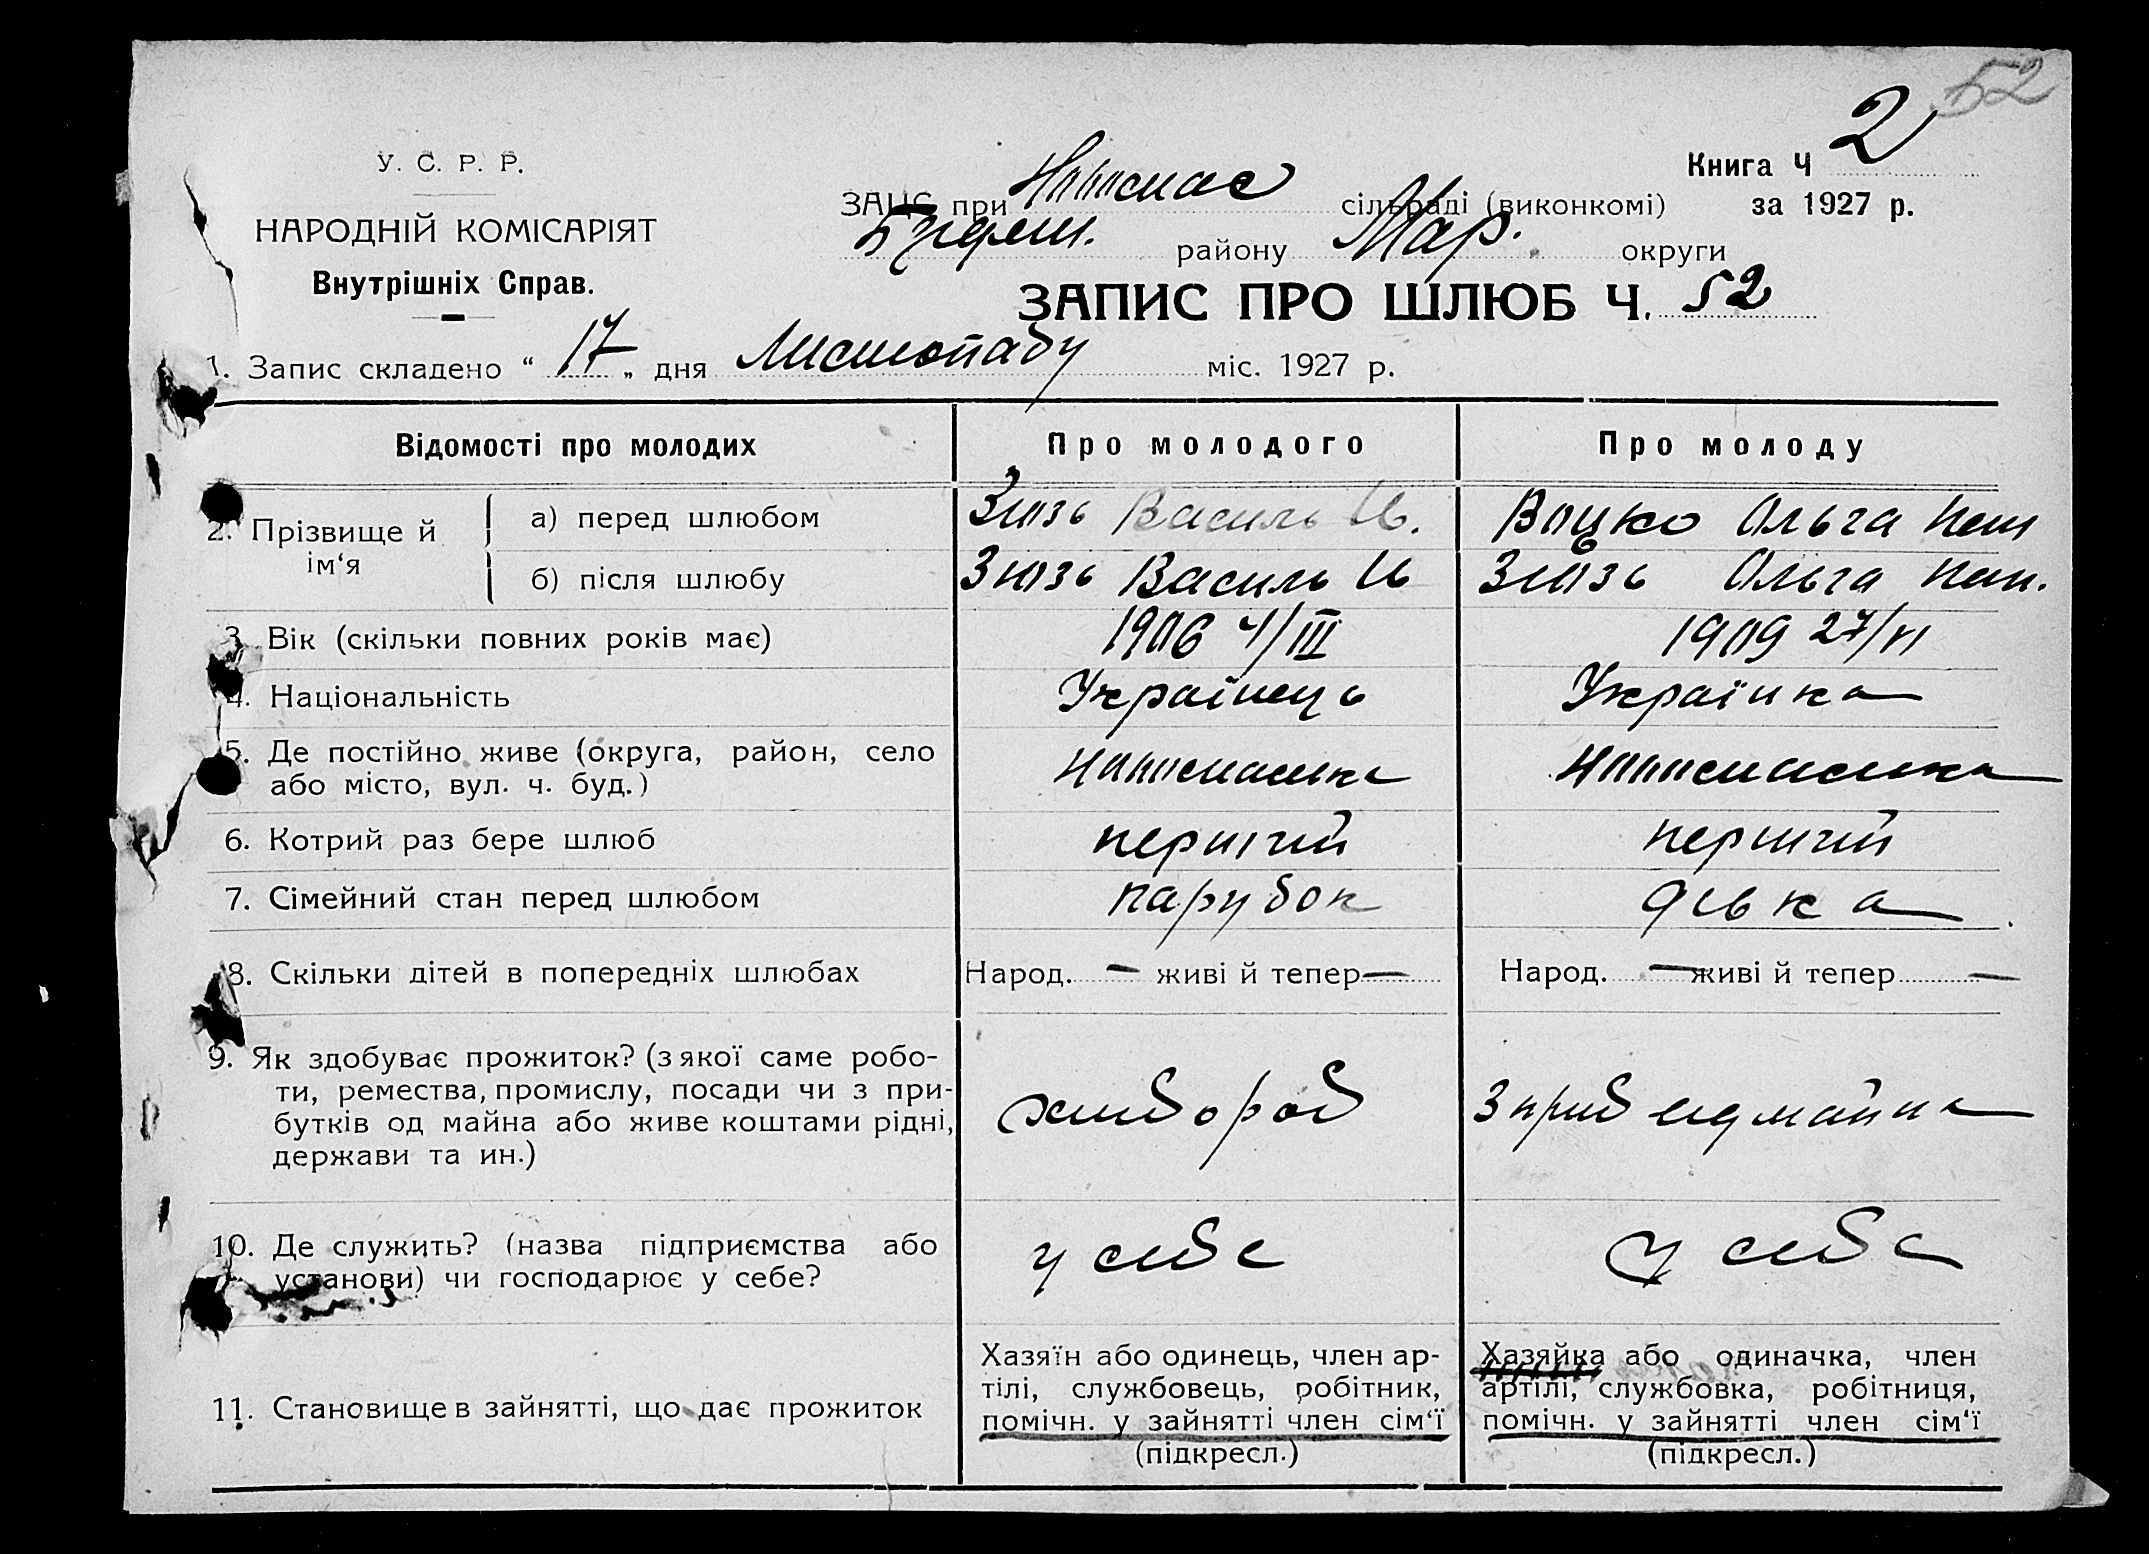 52
У. С. Р. Р.
НАРОДНІЙ КОМІСАРІЯТ
Внутрішніх Справ.
Книга Ч 2
за 1927 р.
ЗАЦС при Новоспас сільраді (виконкомі)
району Мар. округи
ЗАПИС ПРО ШЛЮБ Ч. 52
1. Запис складено “ 17 „ дня Листопаду міс. 1927 р.
Відомості про молодих
Про молодого
Про молоду
2. Прізвище й ім‘я
а) перед шлюбом
Знязь Василь И.
Воцко Ольга Пет
б) після шлюбу
Знязь Василь И
Знязь Ольга Пет.
3. Вік (скільки повних років має)
1906 4/III
1909 27/VI
4. Національність
Українець
Українка
5. Де постійно живе (округа, район, село
або місто, вул. ч. буд.)
Новоспаська
Новоспаська
6. Котрий раз бере шлюб
перший
перший
7. Сімейний стан перед шлюбом
парубок
дівка
8. Скільки дітей в попередніх шлюбах
Народ. — живі й тепер —
Народ. — живі й тепер —
9. Як здобуває прожиток? (з якої саме робо-
ти, ремества, промислу, посади чи з при-
бутків од майна або живе коштами рідні,
держави та ин.)
хлібороб
З приб од майна
10. Де служить? (назва підприємства або
установи) чи господарює у себе?
у себе
у себе
11. Становище в зайнятті, що дає прожиток
Хазяїн або одинець, член ар-
тілі, службовець, робітник,
помічн. у зайнятті член сім‘ї
(підкресл.)
Хазяйка або одиначка, член
артілі, службовка, робітниця,
помічн. у зайнятті член сім‘ї
(підкресл.)